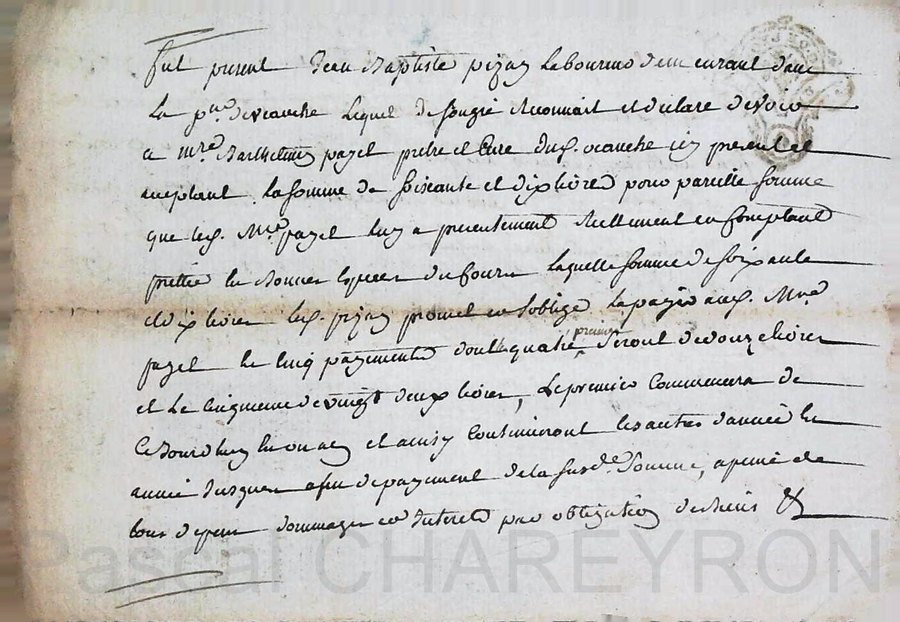 fut present Jean Baptiste pizay laboureur demeurant dans
la p.sse de veauche lequel de son gré reconnait et declare devoir
a m.re Barthelemy payet pretre et curé dud. veauche icy present et
acceptant la somme de soixante et dix livres pour pareille somme
que led. M.re payet luy a presentement reellement en comptant
prettée en bonnes especes du cours laquelle somme de soixante
et dix livres led. pizay promet et s'oblige la payer aud. M.re
payet en cinq payements dont les quatre premiers seront de douze livres
et le cinquieme de vingt deux livres, le premier commencera de
ce jourdhuy en un an et ainsy continueront les autres d'année en
année jusques a fin de payement de la susd.e somme, a peine de
tous depens dommages et interets par obligation de biens &
Pascal CHAREYRON